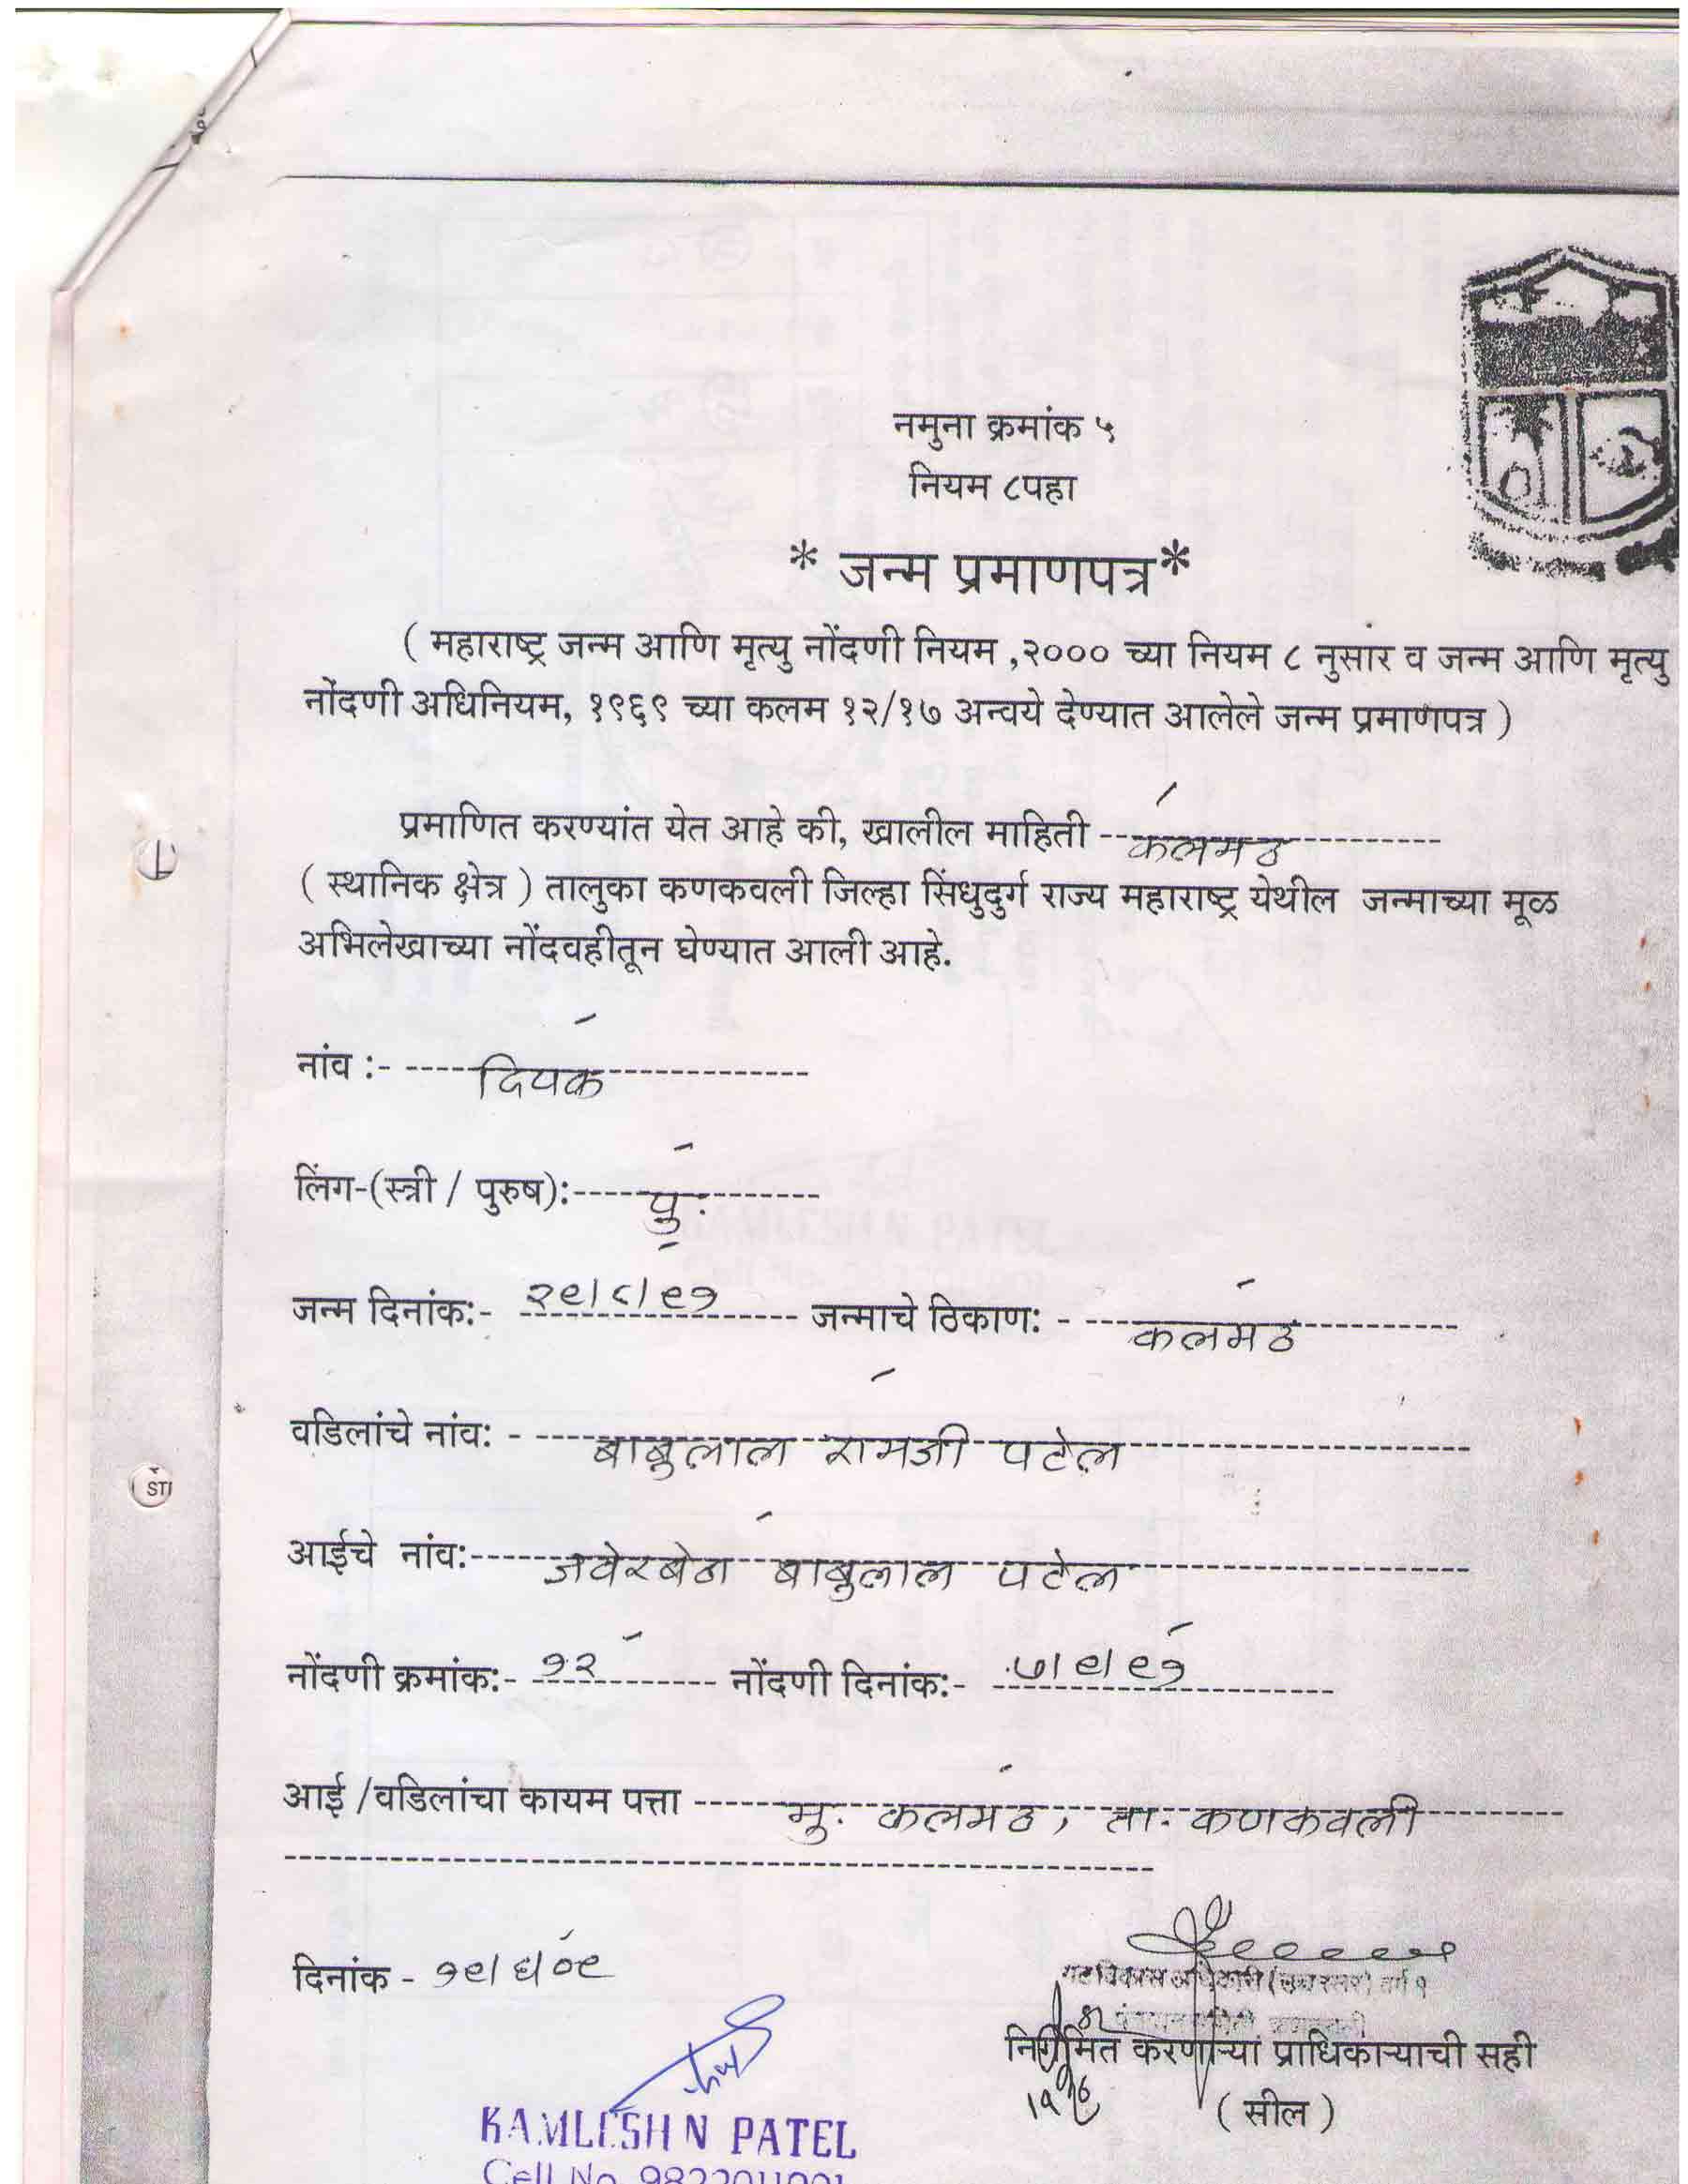 नमुना क्रमांक ५
नियम ८पहा
* जन्म प्रमाणपत्र*
( महाराष्ट्र जन्म आणि मृत्यु नोंदणी नियम ,२००० च्या नियम ८ नुसार व जन्म आणि मृत्यु
नोंदणी अधिनियम, १९६९ च्या कलम १२/१७ अन्वये देण्यात आलेले जन्म प्रमाणपत्र )
प्रमाणित करण्यांत येत आहे की, खालील माहिती -- कलमठ ----------
( स्थानिक क्षेत्र ) तालुका कणकवली जिल्हा सिंधुदुर्ग राज्य महाराष्ट्र येथील जन्माच्या मूळ
अभिलेखाच्या नोंदवहीतून घेण्यात आली आहे.
नांव :- ---- दिपक -------------
लिंग-(स्त्री / पुरुष):----- पु. --------
जन्म दिनांक:- २९/८/९१ ------ जन्माचे ठिकाण: - --- कलमठ -----------
वडिलांचे नांव: - ---- बाबुलाल रामजी पटेल -----------------------
आईचे नांव:------ जवेरबेन बाबुलाल पटेल -----------------------
नोंदणी क्रमांक:- १२ -------- नोंदणी दिनांक:- ७/९/९१ ----------
आई /वडिलांचा कायम पत्ता ------ मु. कलमठ, ता. कणकवली ---------
दिनांक - १९/६/०९
गटविकास अधिकारी (उच्चस्तर) वर्ग १
निर्गमित करणाऱ्या प्राधिकाऱ्याची सही
( सील )
KAMLESH N PATEL
Cell No. 9822011001
STI